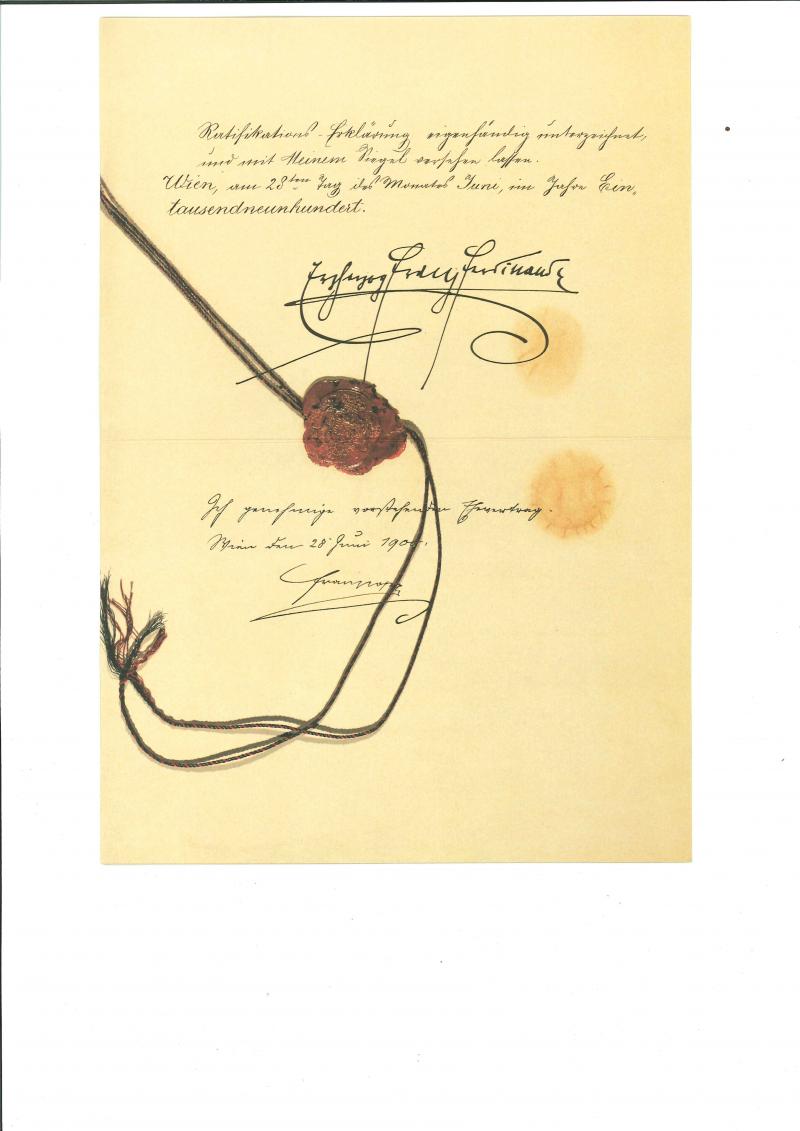 Ratifikations-Erklärung eigenhändig unterzeichnet,
und mit Meinem Siegel versehen lassen.
Wien, am 28ten Tag des Monates Juni, im Jahre Ein-
tausendneunhundert.
Erzherzog Franz Ferdinand
Ich genehmige vorstehenden Ehevertrag.
Wien den 28 Juni 1900.
Franz Joseph